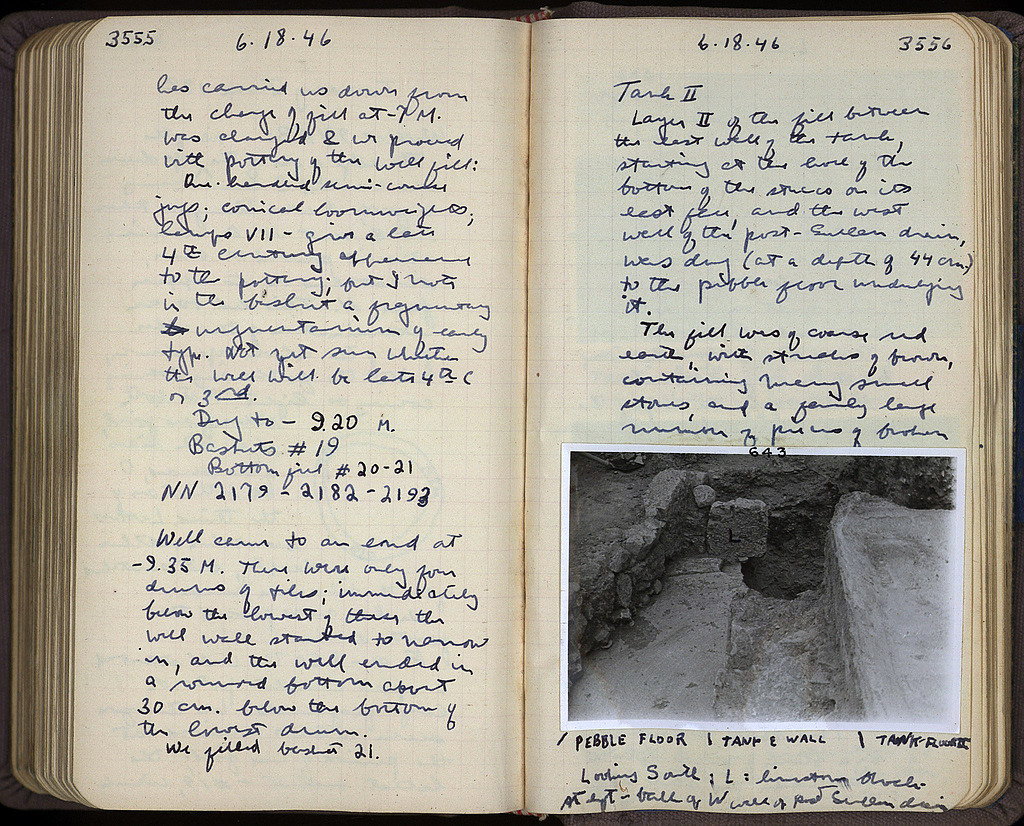 3555
6·18·46
has carried us down from
the change of fill at -7 M.
was changed & we proceed
with pottery of the well fill:
One-handled semi-coarse
jugs; conical loomweights;
lamps VII - give a late
4th century appearance
to the pottery; but I note
in the basket a fragmentary
unguentarium of early
type. Not yet sure whether
the well will be late 4th C
or 3rd.
Dug to - 9.20 M.
Baskets # 19
Bottom fill # 20-21
NN 2179 - 2182 - 2193
Well came to an end at
-9.35 M. There were only four
drums of tiles; immediately
below the lowest of these the
well wall started to narrow
in, and the well ended in
a rounded bottom about
30 cm. below the bottom of
the lowest drum.
We filled basket 21.
6·18·46
3556
Tank II
Layer II of the fill between
the east wall of the tank,
starting at the level of the
bottom of the stucco on its
east face, and the west
wall of the post-Sullan drain,
was dug (at a depth of 44 cm.)
to the pebble floor underlying
it.
The fill was of coarse red
earth, with streaks of brown,
containing many small
stones, and a fairly large
number of pieces of broken
643
L
/ PEBBLE FLOOR | TANK E WALL \ TANK FLOOR
Looking South; L: limestone block
of W wall of post Sullan drain